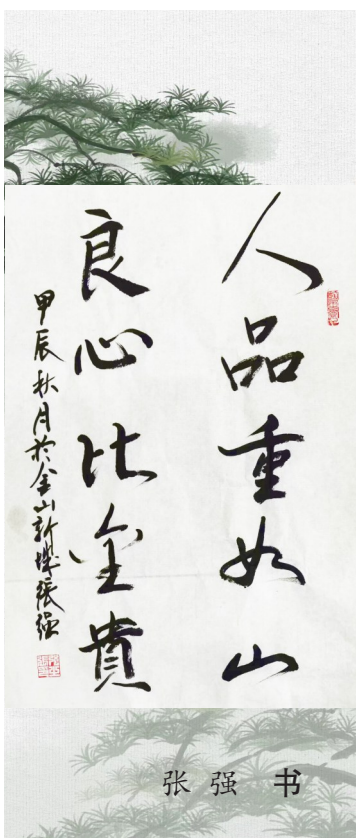 人品重如山
良心比金貴
甲辰秋月於金山新城張强
张强 书